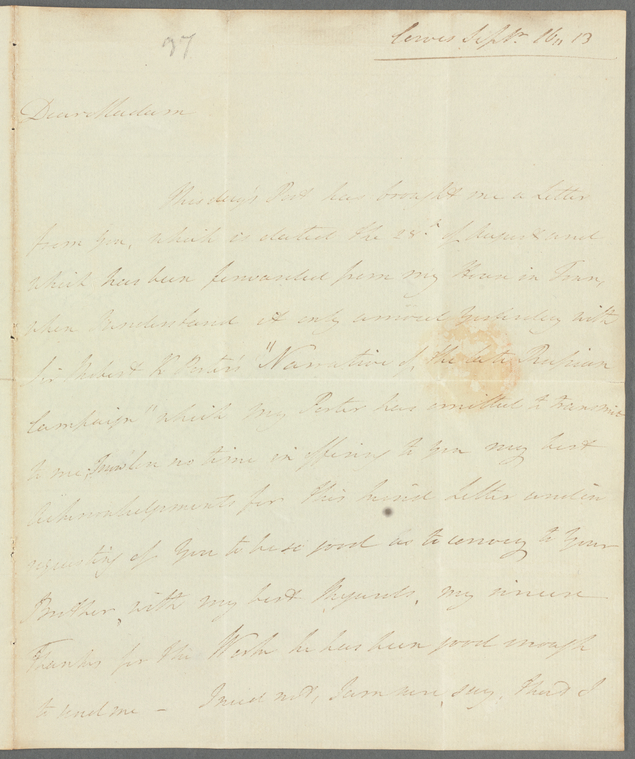 37
Cowes Septr. 16, 13
Dear Madam
This day's Post has brought me a Letter
from you, which is dated the 28th of August and
which has been forwarded from my House in Town,
when I understand it only arrived yesterday with
Sir Robert K Porter's "Narrative of the late Russian
Campaign" which my Porter has omitted to transmit
to me. I lose no time in offering to you my best
Acknowledgements for this kind Letter and in
requesting of You to be so good as to convey to Your
Brother, with my best Regards, my sincere
Thanks for the Work he has been good enough
to send me — I need not, I am sure, say, that I